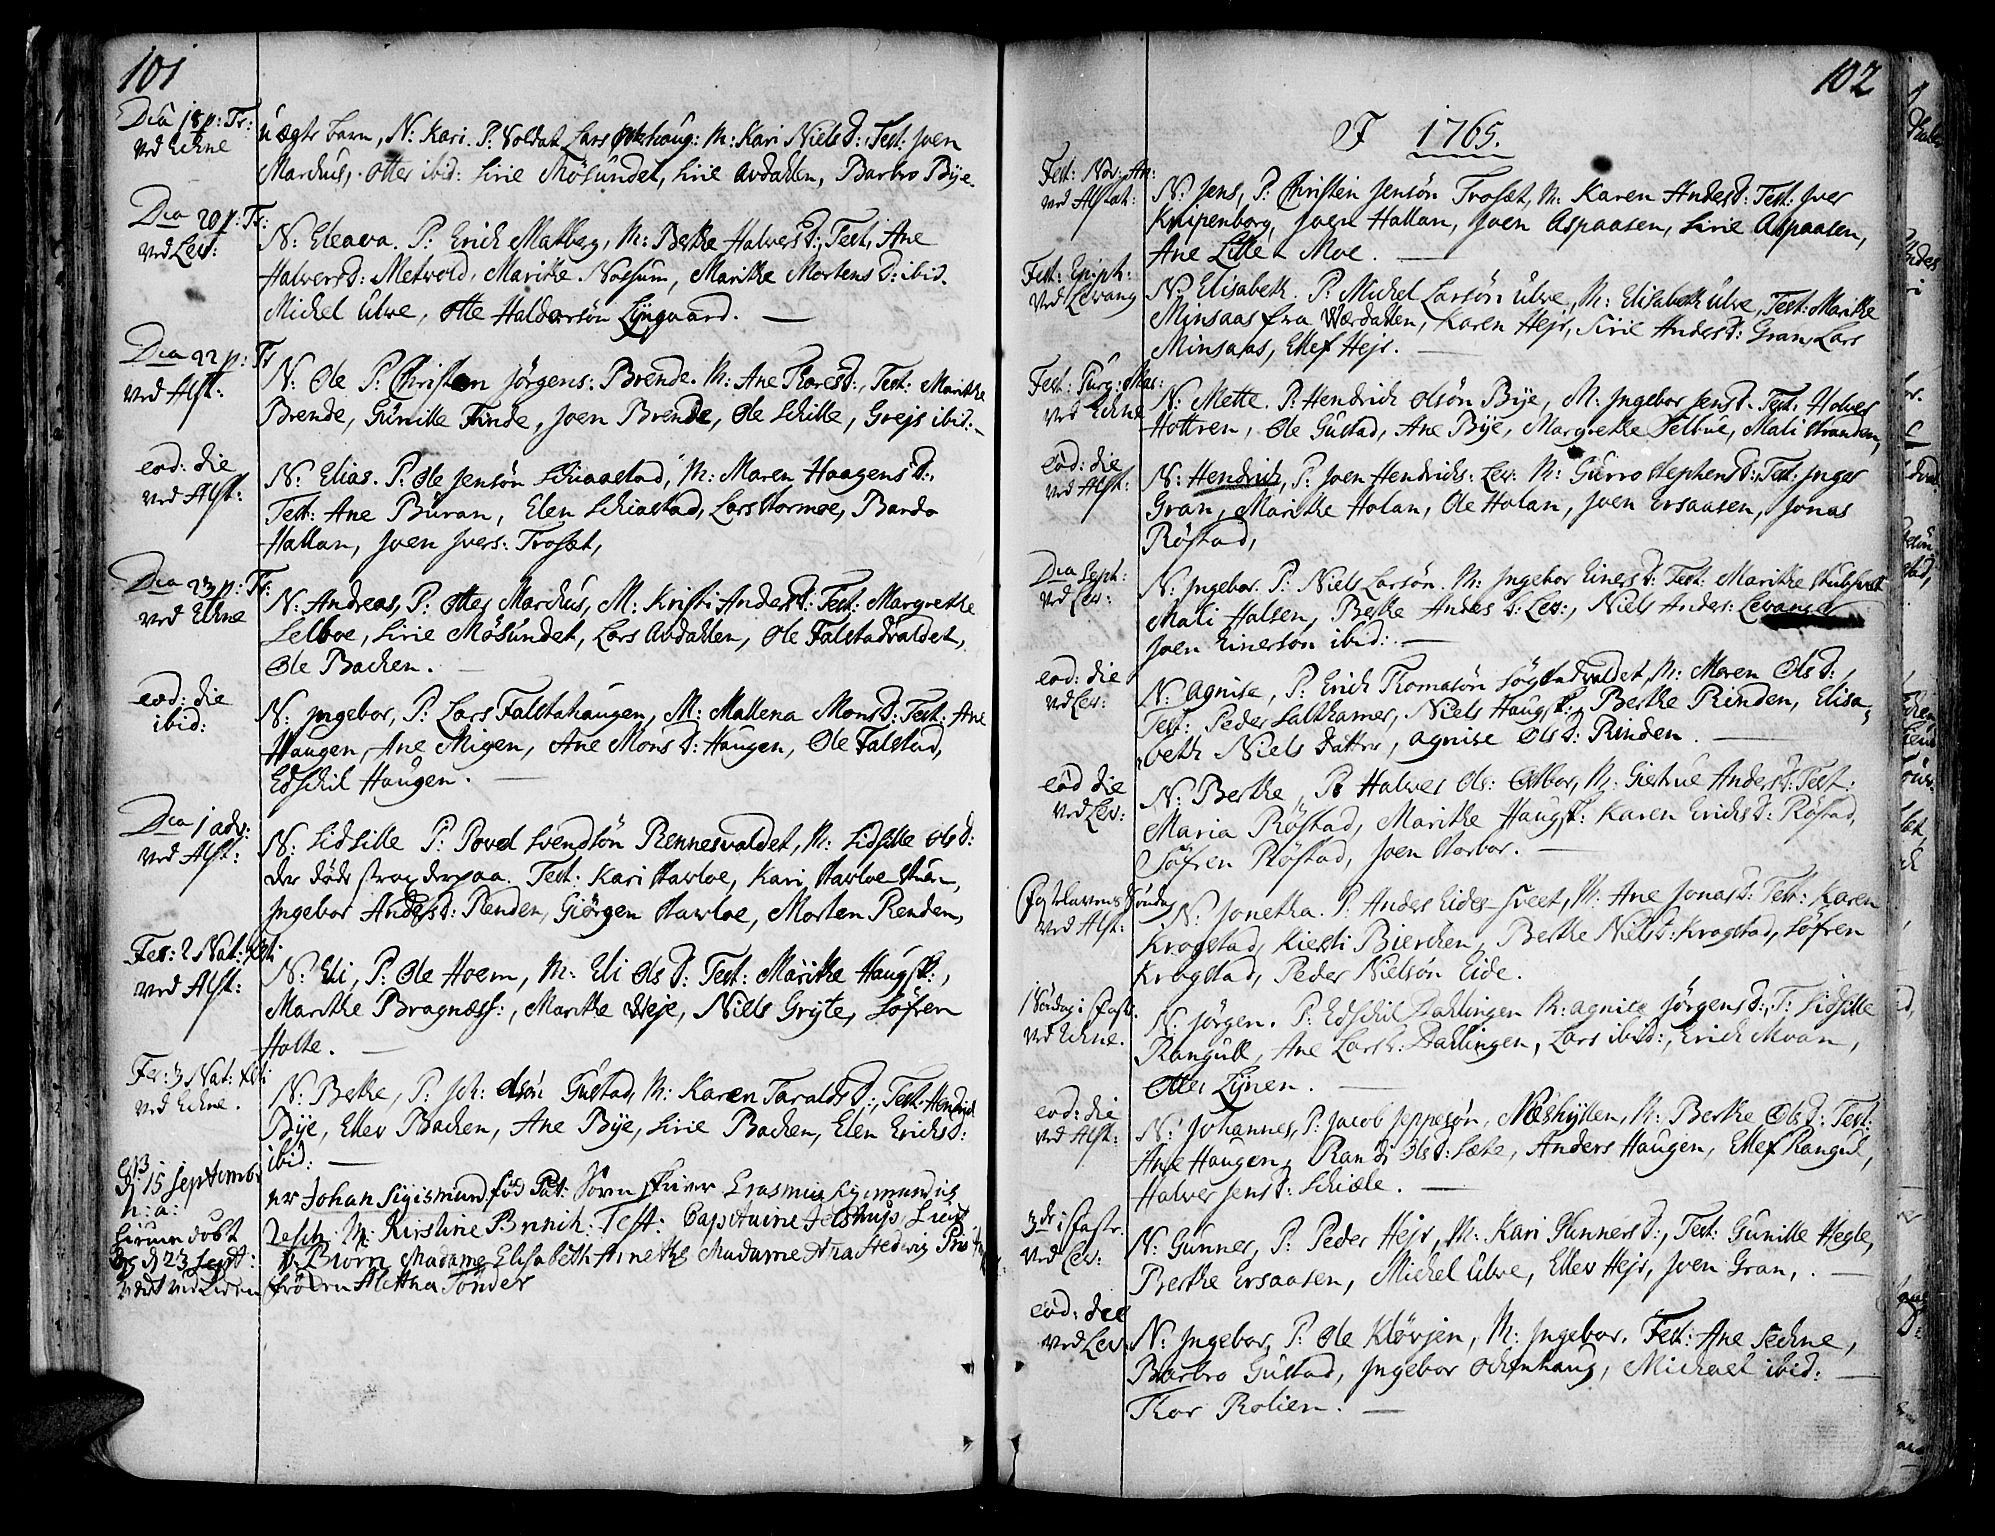 101
Dca 18 p: Tr:
ved Echne
uægte barn, N: Kari. P: Soldat Lars Okkehaug: M: Kari Nielsd: Test: Joen
Marchus, Otter ibid: Sirie Mösundet, Sirie Avdahlen, Barbro Bye.
Dca 20 p: Tr:
ved Lev:
N: Eleava. P: Erich Matberg, M: Berthe Halversd:, Test, Ane
Halversd: Metvold, Marithe Nossum, Marithe Mortensd: ibid.
Michel Ulve, Otte Haldorsön Lyngaard.
Dca 22 p: Tr
ved Alst:
N: Ole P: Christen Jörgens: Brende. M: Ane Thoresd:, Test: Marithe
Brende, Gunille Tinde, Joen Brende, Ole Schille, Grejs ibid:
eod: die
ved Alst:
N: Elias. P: Ole Jensön Schiaastad, M: Maren Haagensd:
Test: Ane Buran, Elen Schiastad, Lars Stormoe, Bardo
Hallan, Joen Ivers: Trosæt,
Dca 23 p: Tr:
ved Echne
N: Andreas, P: Otter Marchus, M: Kristi Andersd: Test: Margrethe
Selboe, Sirie Mösundet, Lars Avdahlen, Ole Falstadvaldet,
Ole Bachen.
eod: die
ibid:
N: Ingebor, P: Lars Falstahaugen, M: Mallena Monsd: Test: Ane
Haugen, Ane Migen, Ane Monsd: Haugen, Ole Falstad,
Edschil Haugen.
Dca 1 adv:
ved Alst:
N: Sidsille P: Povel Svendsön Rennesvaldet, M: Sidsille Olsd:
der döde strax derpaa. Test: Kari Havloe, Kari Havloe
Ingebor Andersd: Renden, Giörgen Havloe, Morten Renden,
Fer: 2 Nat: xsti
ved Alst:
N: Eli, P: Ole Hoem, M: Eli Olsd: Test: Marithe Haugsk:,
Marithe Bragnæss:, Marithe Weje, Niels Gryte, Söfren
Holte.
Fer: 3 Nat: xsti
ved Echne.
N: Berthe, P: Joh: Olsön Gustad, M: Karen Taraldsd:, Test: Hendrich
Bye, Ellev Bachen, Ane Bye, Sirie Bachen, Elen Erichsd:
ibid:
d: 15 September
h: a:
døbt
d 23 Sept:
er Johan Sigismund fød Pat: Erasmus
M: Kirstine Test: Capitaine Jelstrup, Lieut
Biørn, Madame Elisabeth Arnethe Madame Hedevig
frøken Alethea Tönder
102
J 1765.
Fest: Nov: An:
ved Alstah:
N: Jens, P: Christen Jensön Trosæt, M: Karen Andersd: Test: Iver
Knipenborg, Joen Hallan, Joen Aspaasen, Sirie Aspaasen,
Ane Lille Moe.
Fest: Epiph:
ved Levang
N: Elisabeth. P: Michel Larsön Ulve, M: Elisabeth Ulve, Test: Marithe
Minsaas fra Værdahlen, Karen Hejs, Sirie Andersd: Gran, Lars
Minsaas, Ellef Hejs.
Fest: Purg: Mar:
ved Echne
N: Mette. P: Hendrich Olsön Bye, M: Ingebor Jensd. Test: Halver
Hottren, Ole Gustad, Ane Bye, Margrethe Selbue, Mali Stranden,
eod: die
ved Alst:
N: Hendrich, P: Joen Hendrichs: Lev: M: Gurro Stephensd: Test: Inger
Gran, Marithe Holan, Ole Holan, Joen Ersaasen, Jonas
Röstad,
Dca Sept:
ved Lev:
N: Ingebor. P: Niels Larsön. M: Ingebor Einersd: Test: Marithe
Mali Halsen, Berthe Andersd: Lev:, Niels Anders: Levanger
Joen Einersön ibid:
eod: die
ved Lev:
N: Agnise, P: Erich Thomasön M: Maren Olsd:,
Test: Peder Salthamer, Niels Haugsk:, Berthe Rinden, Elisa-
beth Niels Datter, Agnise Olsd: Rinden.
eod die
ved Lev:
N: Berthe, P: Halver Ols: Okbor, M: Giertrue Andersd: Test:
Maria Röstad, Marithe Haugsk: Karen Erichsd: Röstad,
Söfren Röstad, Joen Storbor.
Fastelavns Söndag
ved Alst:
N: Jonetha. P: Anders Eides-sveet, M: Ane Jonasd: Test: Karen
Krogstad, Kiersti Bierchen, Berthe Nielsd: Krogstad, Söfren
Krogstad, Peder Nielsön Eide.
1 Söndag i fast:
ved Echne.
N: Jörgen. P: Edschil Dahlingen M: Agnise Jörgensd:, T: Sidsille
Rangull, Ane Larsd: Dahlingen, Lars ibid:, Erich Moan,
Otter Lynen.
eod: die
ved Alst:
N: Johannes, P: Jacob Jeppesön, Næshyllen, M: Berthe Olsd: Test:
Ane Haugen, Randi Olsd: Læte, Anders Haugen, Ellef Rangul,
Halver Jensd: Schiæle.
3die i fastr.
ved Lev:
N: Gunner, P: Peder Hejs, M: Kari Gunnersd:, Test: Gunille Hegle,
Berthe Ersaasen, Michel Ulve, Ellev Hejs, Joen Gran,
eod: die
ved Lev.
N: Ingebor, P: Ole Klövjen, M: Ingebor. Test: Ane Sechne,
Barbro Gustad, Ingebor Ochenhaug, Michael ibid:
Thor Rolien.